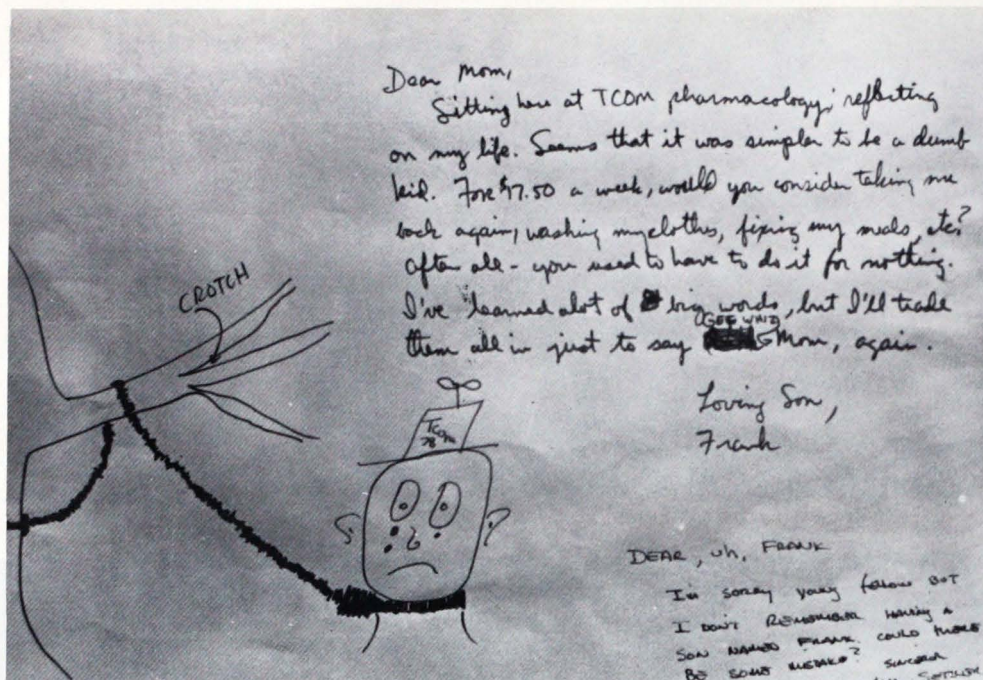 Dear Mom,
Sitting here at TCOM pharmacology, reflecting
on my life. Seems that it was simpler to be a dumb
kid. For $17.50 a week, would you consider taking me
back again, washing my clothes, fixing my meals, etc?
After all - you used to have to do it for nothing.
I've learned alot of big words, but I'll trade
GEE WHIZ
them all in just to say Mom, again.
Loving Son,
Frank
CROTCH
TCOM
78
DEAR, uh, FRANK
I'm sorry young fellow BUT
I DON'T REMEMBER HAVING A
SON NAMED FRANK. COULD THERE
BE SOME MISTAKE? SINCERELY